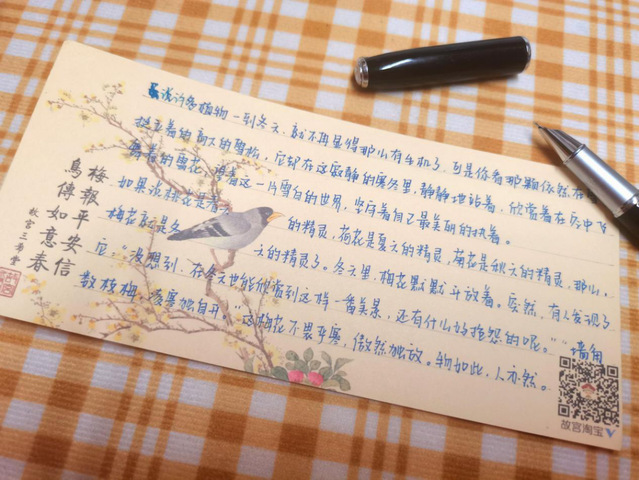 说许多植物一到冬天，就不再显得那么有生机了，可是你看那颗依然在
挺立着的高大的雪松，它却在这寂静的寒冬里，静静地站着，欣赏着在空中飞
舞着的雪花，望着这一片雪白的世界，坚守着自己最美丽的执着。
如果说桃花是春 的精灵，荷花是夏天的精灵，菊花是秋天的精灵，那么，
梅花就是冬 天的精灵了。冬天里，梅花默默斗放着。突然，有人发现了
它，“没想到，在冬天也能欣赏到这样一番美景，还有什么好抱怨的呢。”“墙角
数枝梅，凌寒独自开。”这梅花不畏严寒，傲然独放。物如此，人亦然。
梅報平安信
鳥傳如意春
故宫三希堂
故宫淘宝